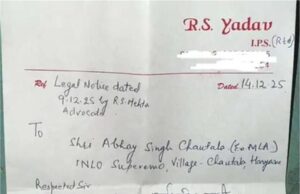 R.S. Yadav
I.P.S. (Rtd)
Ref Legal Notice dated
9-12-25 by R.S. Mehta
Advocate
Dated: 14.12.25
To
Shri Abhay Singh Chautala (Ex MLA)
INLO Supremo, Village - Chautala, Haryana
Respected Sir